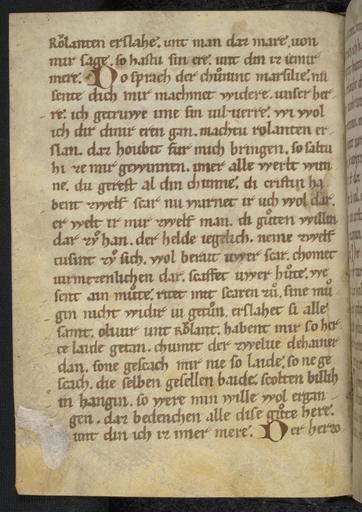 Rŏlanten erslahe. unt man daz mare. uon
mir sage. so hastu sin ere. unt din iz iemir
mere. Do sprach der chůninc marsilie. nu
sente dich mir machmet widere. unser her
re. ich getruwe ime sin uil uerre. wi wol
ich dir dinir eren gan. machtu rolanten er
slan. daz houbit fur mich bringen. so saltu
hi ze mir gewinnen. imer alle werlt wun
ne. du gerest al din chunne. di cristin ha
bent zwelf scar nu warnet ir uch wol dar.
er welt ir mir zwelf man. di gůten willin
dar zů han. der helde iegelich. neme zwelf
tusint zů sich. wol beraut uwer scar. chomet
uirmezenlichen dar. scaffet uwer hůte. we
sent ain můte. ritet mit scaren zů. sine mů
gin nicht widir ui getůn. erslahet si alle
samt. oliuir unt Rŏlant. habent mir so her
ce laide getan. chumit der zwelue dehainer
dan. sone gescach mir nie so laide. so ne ge
scach. die selben gesellen baide. scolten billich
in hangin. so were min wille wol ergan
gen. daz bedenchen alle dise gůte here.
unt din ich iz imer mere. Der herzo